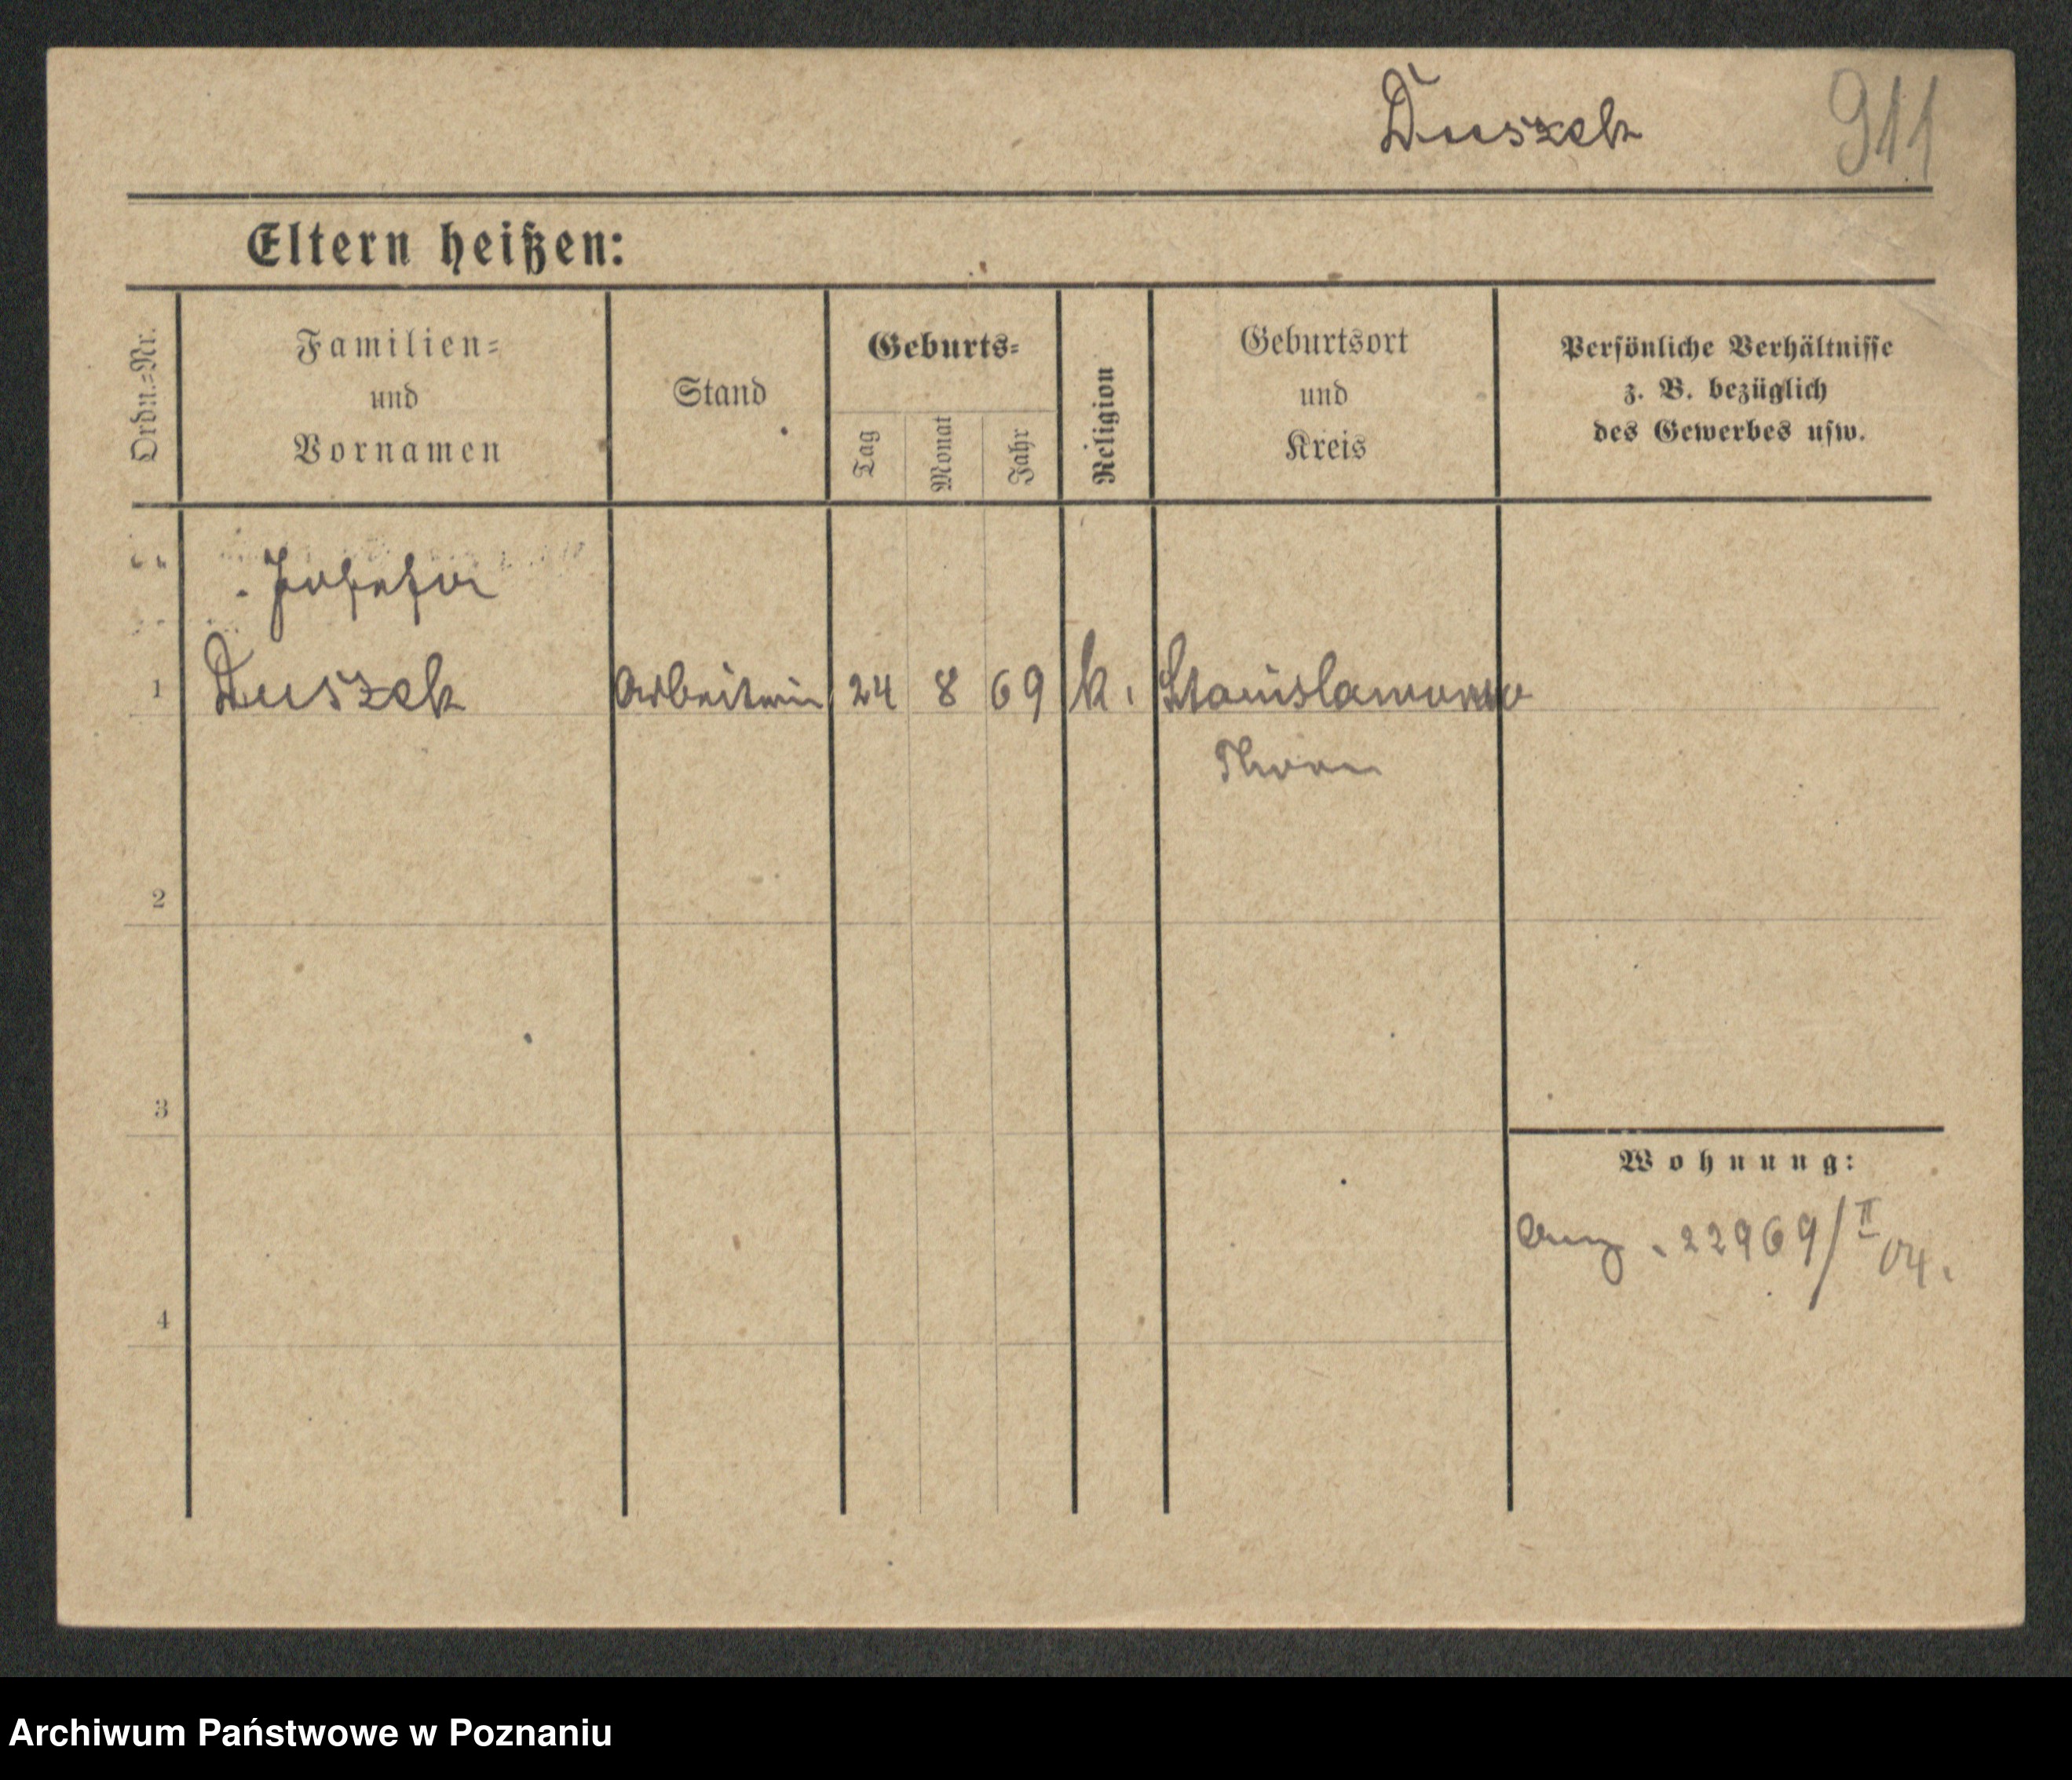 Duszek 911
Eltern heißen:
Ordn.-Nr.
Familien-
und
Vornamen
Stand
Geburts-
Tag
Monat
Jahr
Religion
Geburtsort
und
Kreis
Persönliche Verhältnisse
z. B. bezüglich
des Gewerbes usw.
Josefa
1 Duszek Arbeiterin 24 8 69 k. Stanislawowo
Thorn
2
3
Wohnung:
22969/II 04.
4
Archiwum Państwowe w Poznaniu